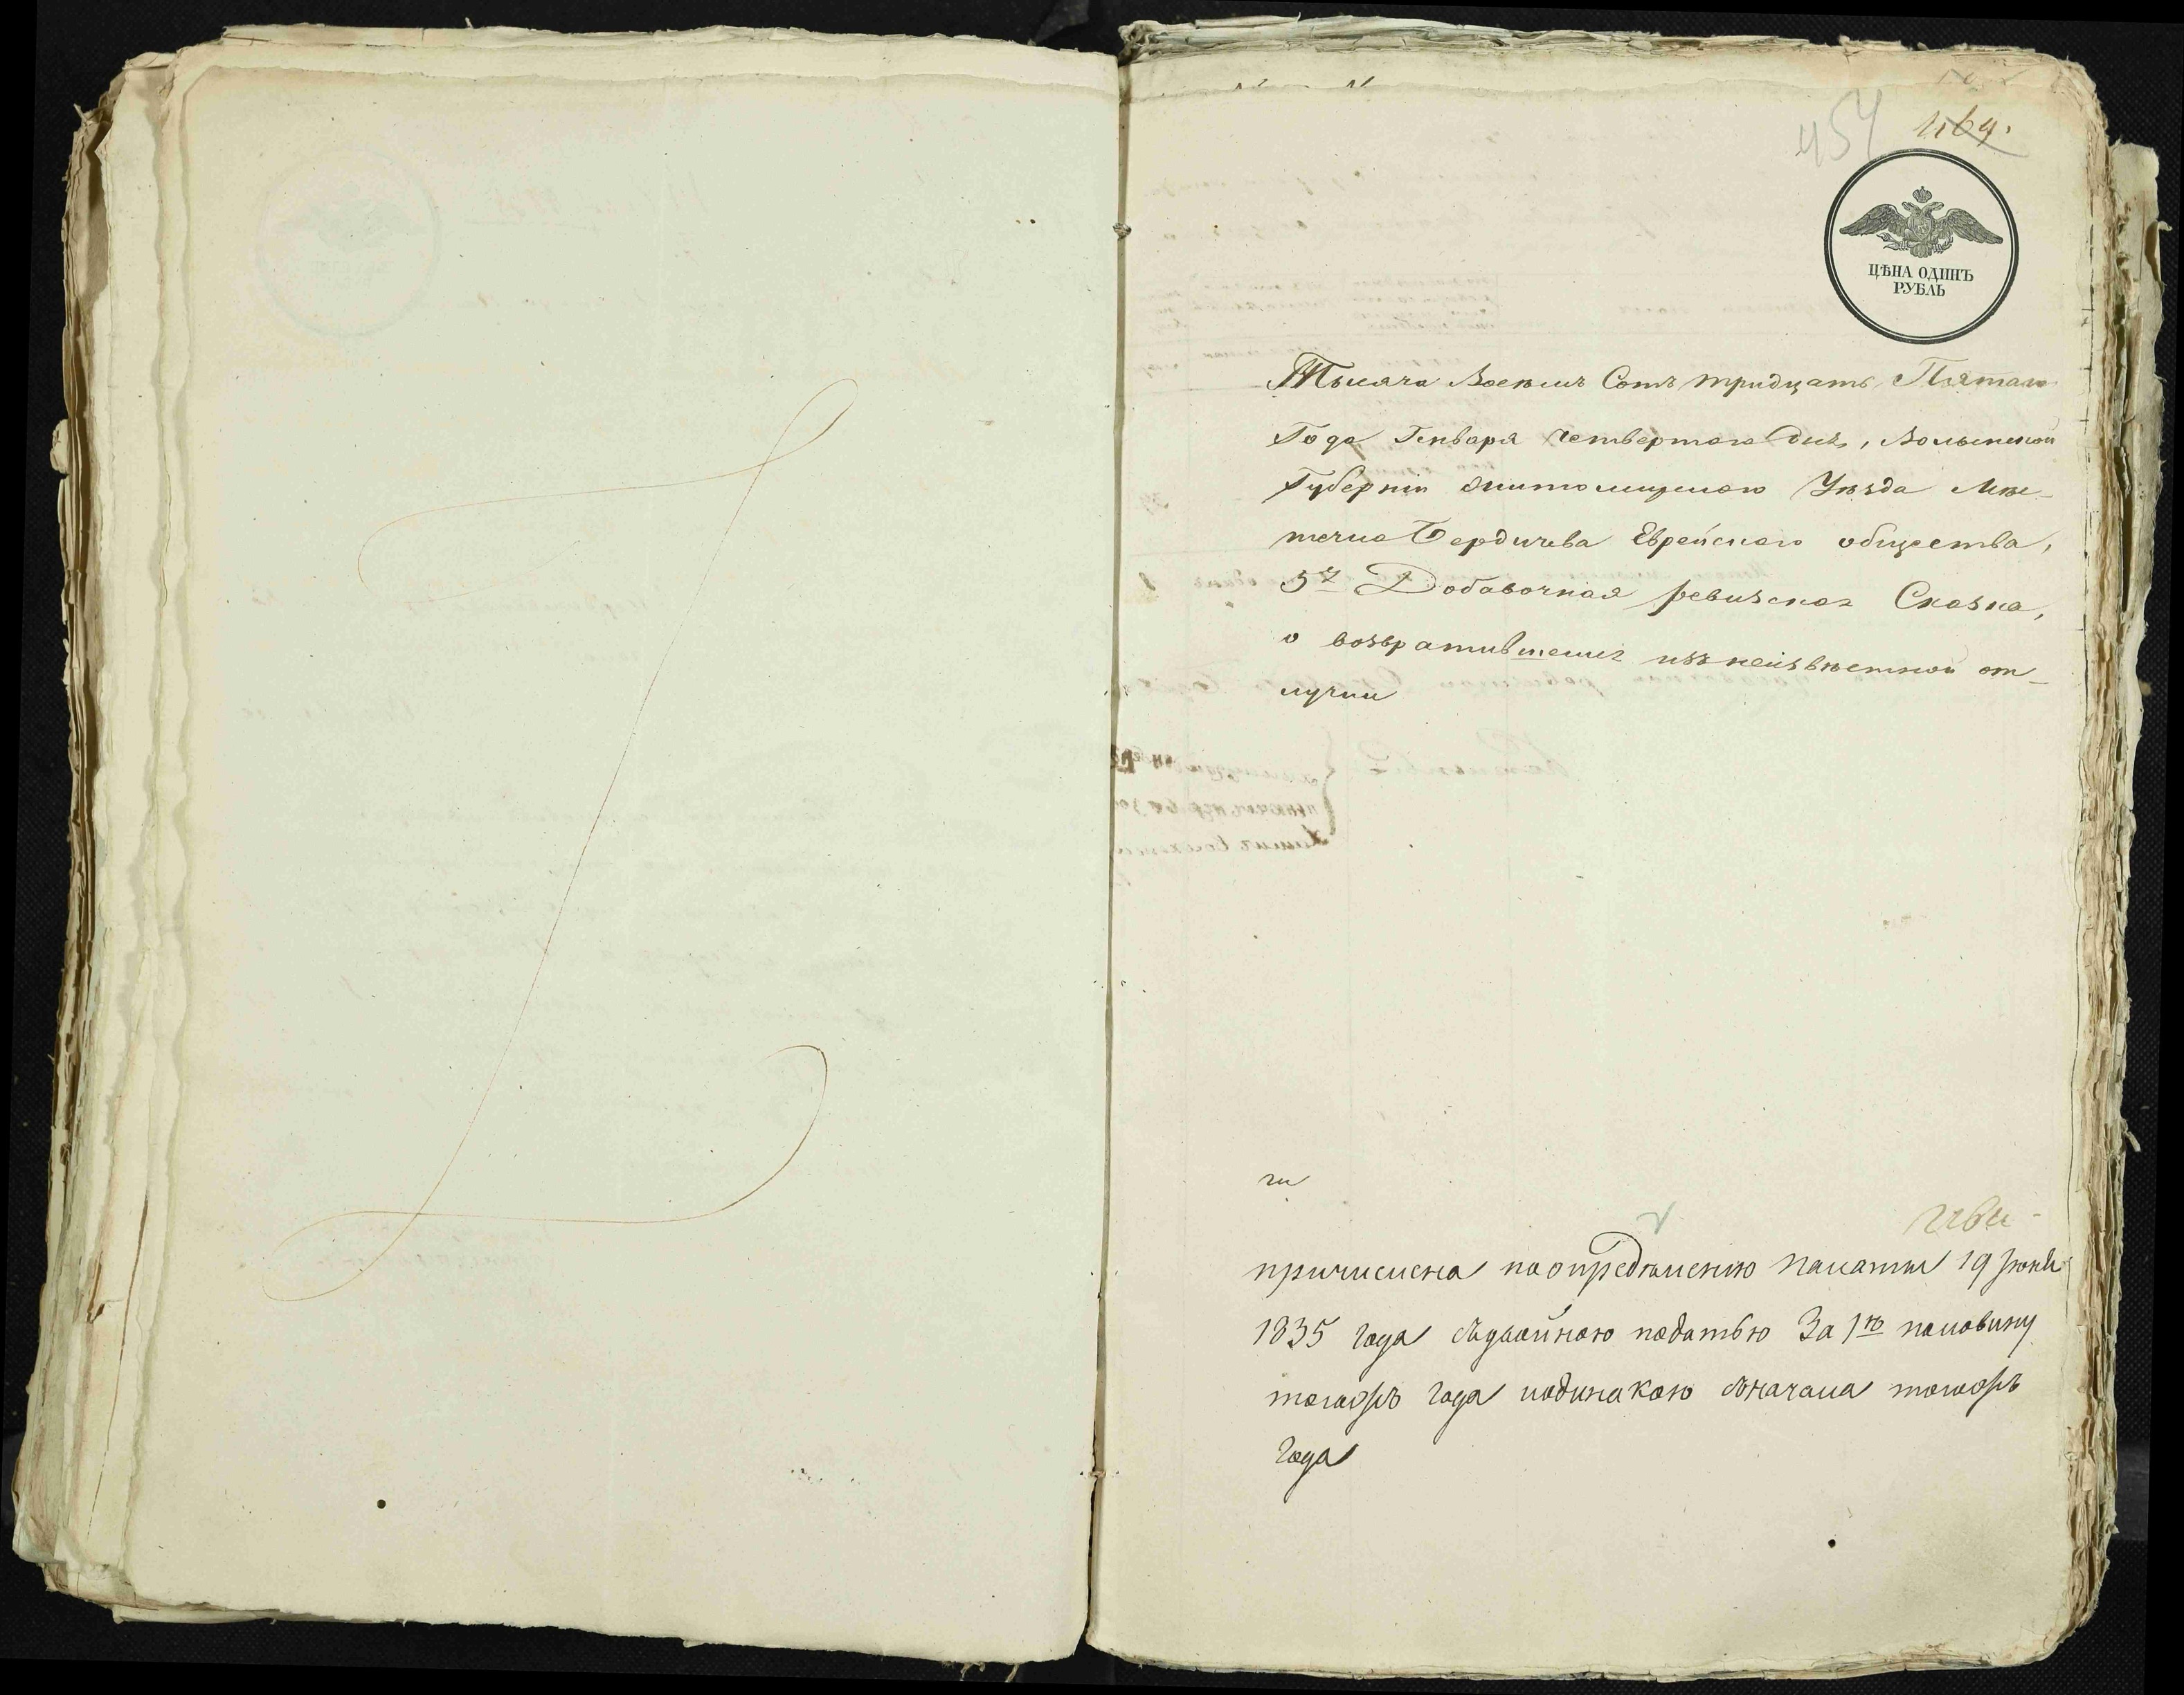 454
469.
ЦѢНА ОДИНЪ
РУБЛЬ
Тысяча Восемь Сотъ тридцать Пятаго
Года Генваря четвертаго дня, Волынской
Губерніи Житомирскаго Уѣзда Мѣс-
течка Бердичева Еврейскаго общества,
5я Добавочная ревизская Сказка,
о возвратившемся изъ неизвѣстной от-
лучки
причислена по опредѣленію палаты 19 Іюня
1835 года съ двойною податью За 1ю половину
тогожъ года и одинакою съ начала тогожъ
года